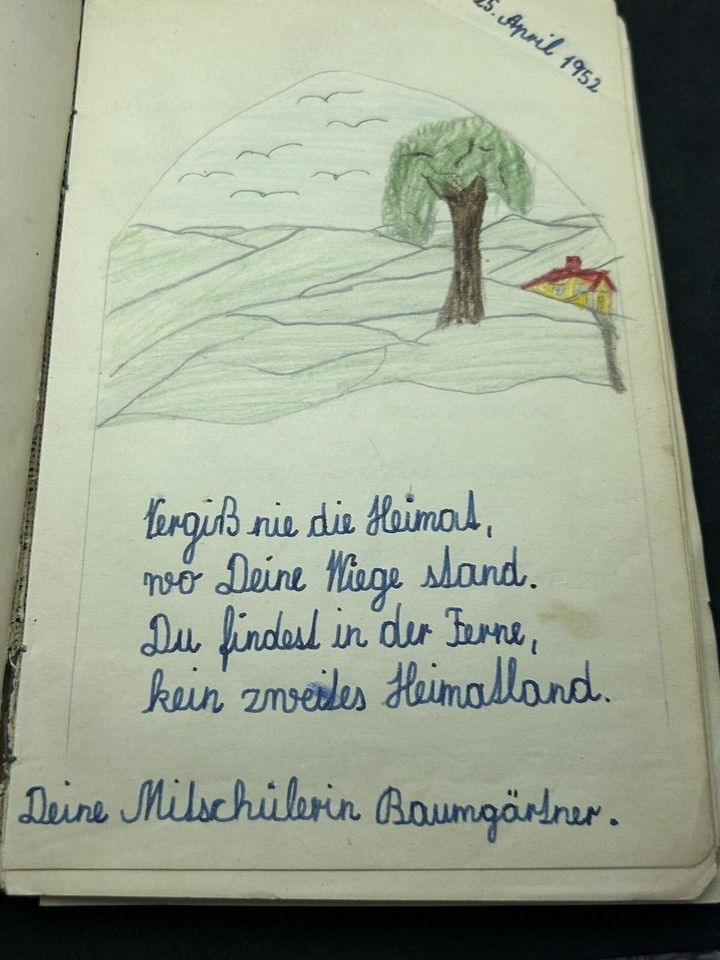 25. April 1952
Vergiß nie die Heimat,
wo Deine Wiege stand.
Du findest in der Ferne,
kein zweites Heimatland.
Deine Mitschülerin Baumgärtner.